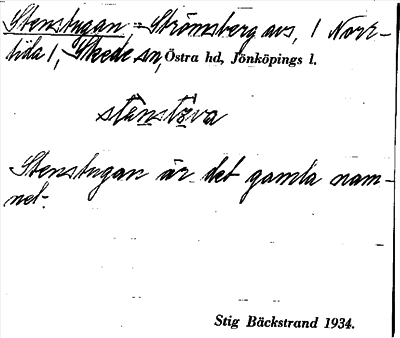 Stenstugan = Strömsberg avs, 1 Norr-
lida 1, Skede sn, Östra hd, Jönköpings l.
stênstɷva
Stenstugan är det gamla nam-
net.
Stig Bäckstrand 1934.